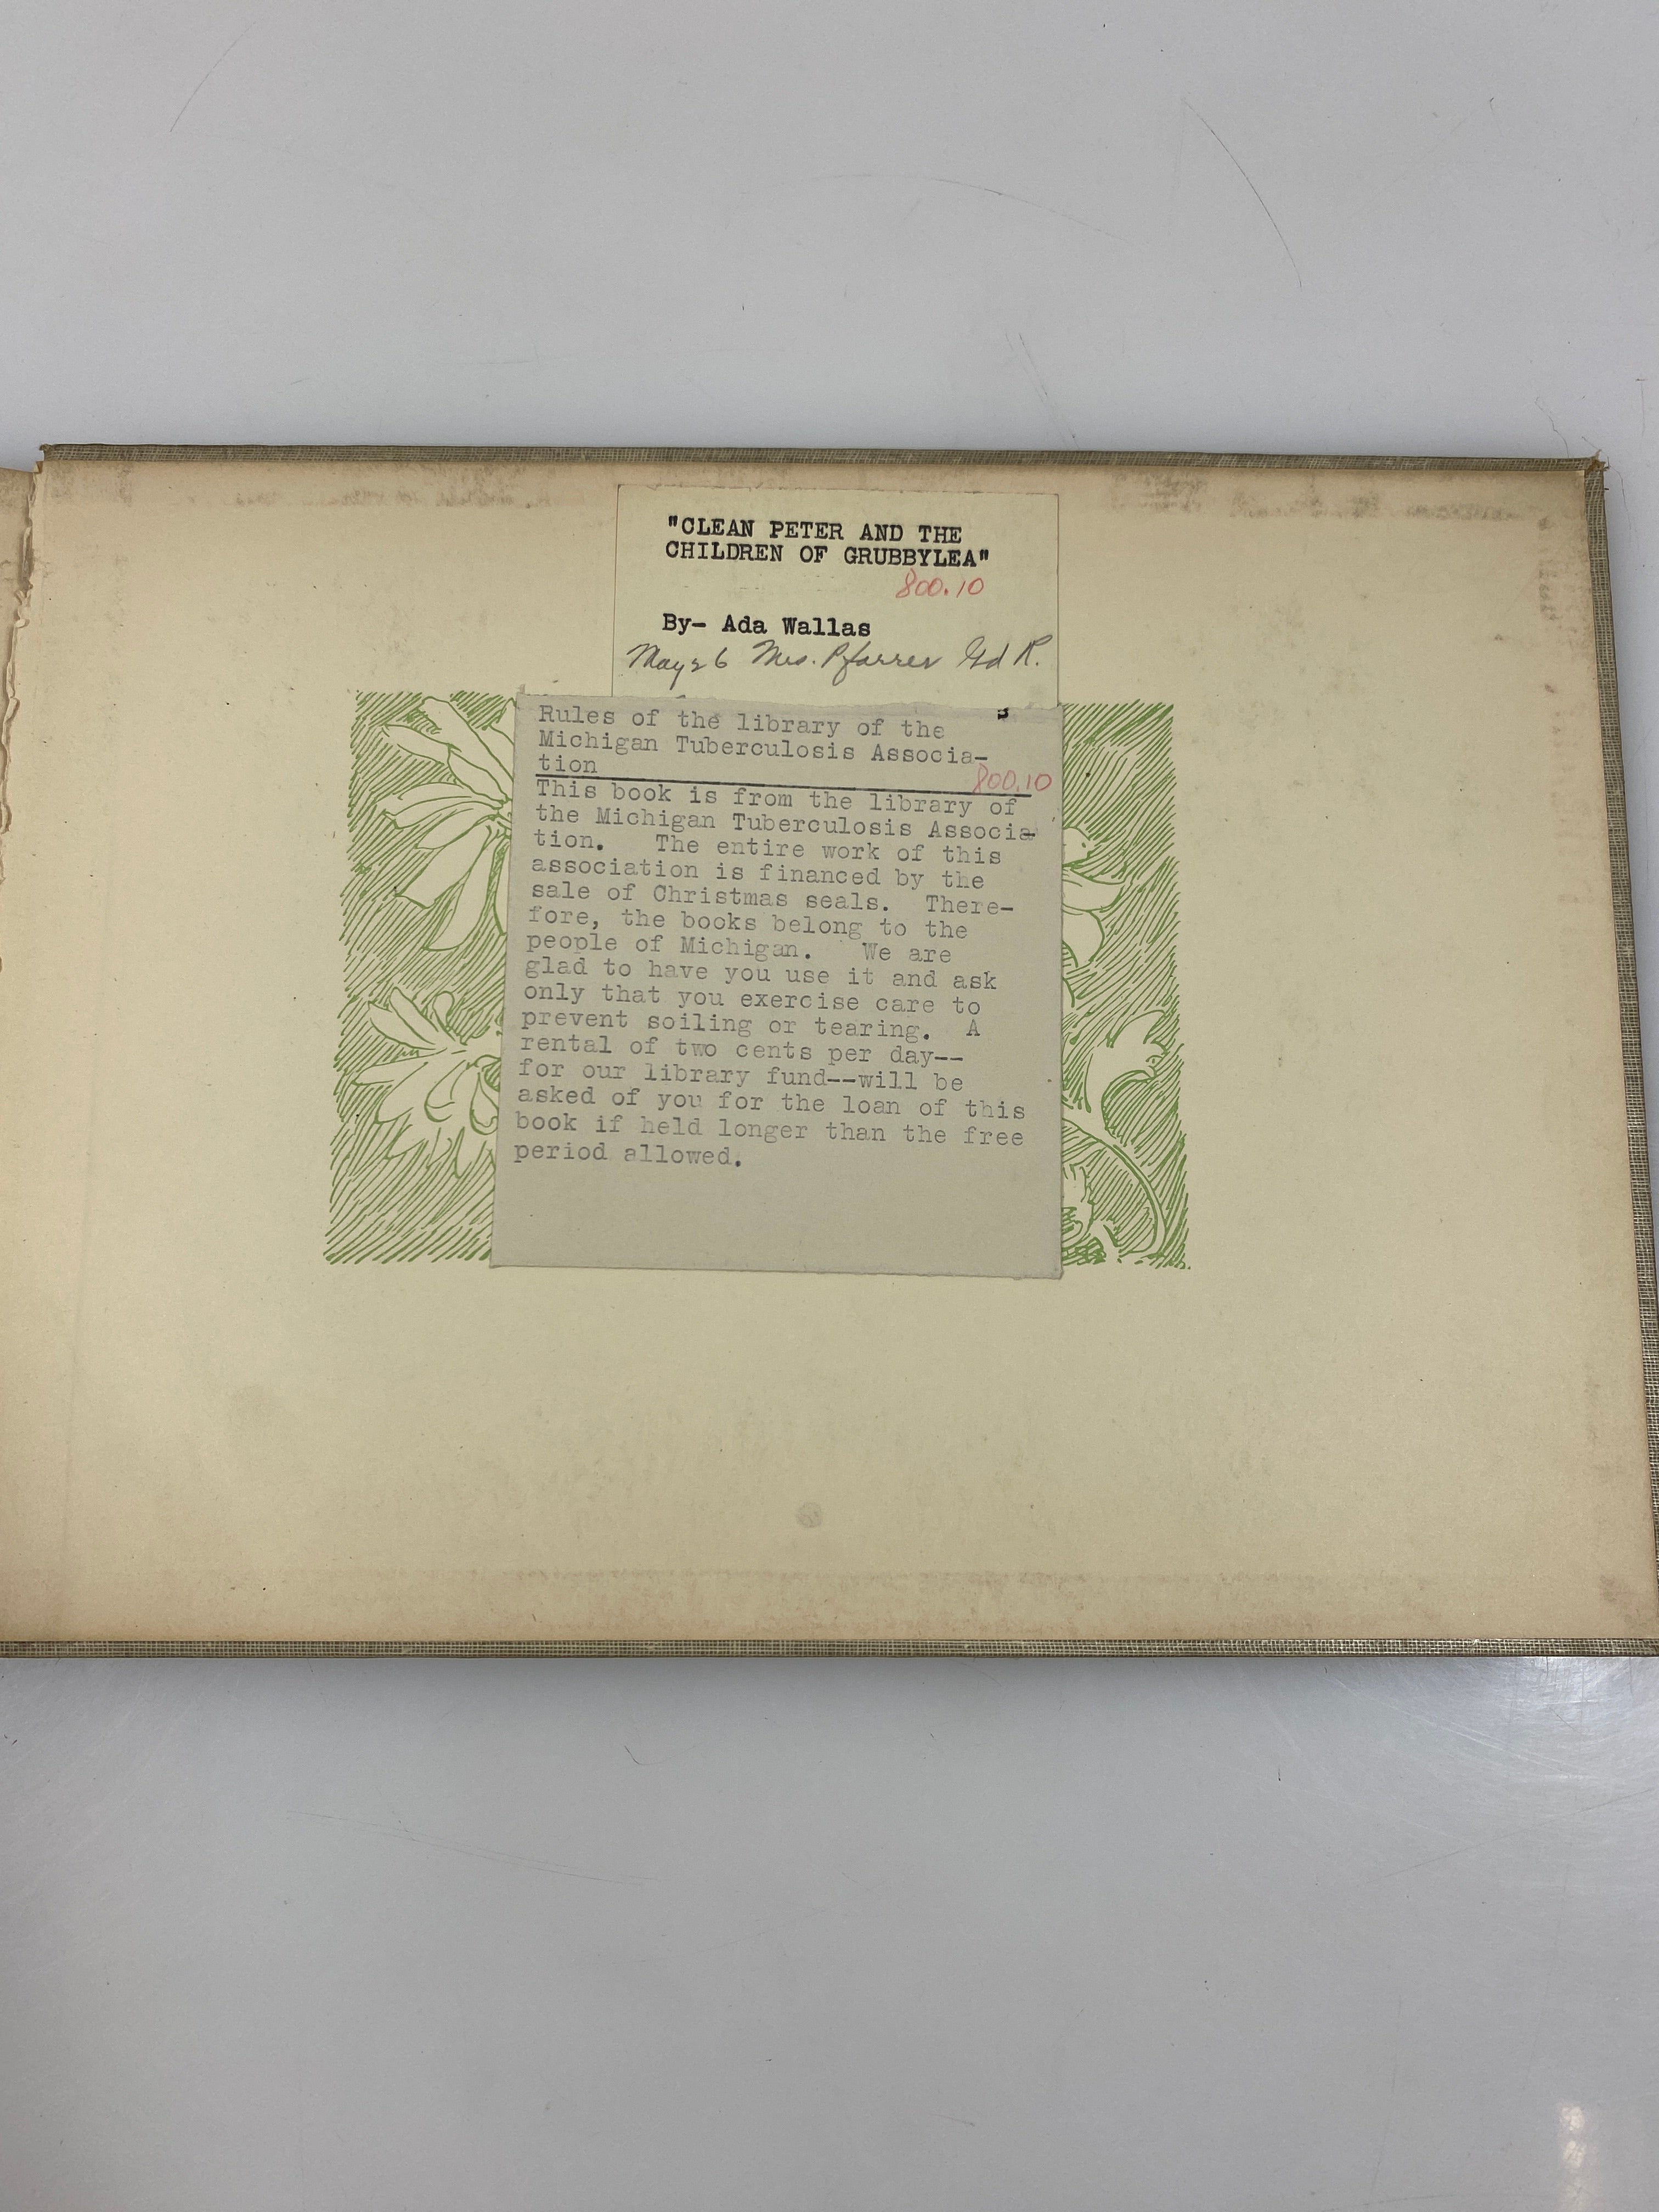 "CLEAN PETER AND THE
CHILDREN OF GRUBBYLEA"
800.10
By- Ada Wallas
May 26 Mrs. Pfarrer Gd R.
Rules of the library of the
Michigan Tuberculosis Associa-
tion
800.10
This book is from the library of
the Michigan Tuberculosis Associa-
tion. The entire work of this
association is financed by the
sale of Christmas seals. There-
fore, the books belong to the
people of Michigan. We are
glad to have you use it and ask
only that you exercise care to
prevent soiling or tearing. A
rental of two cents per day--
for our library fund--will be
asked of you for the loan of this
book if held longer than the free
period allowed.